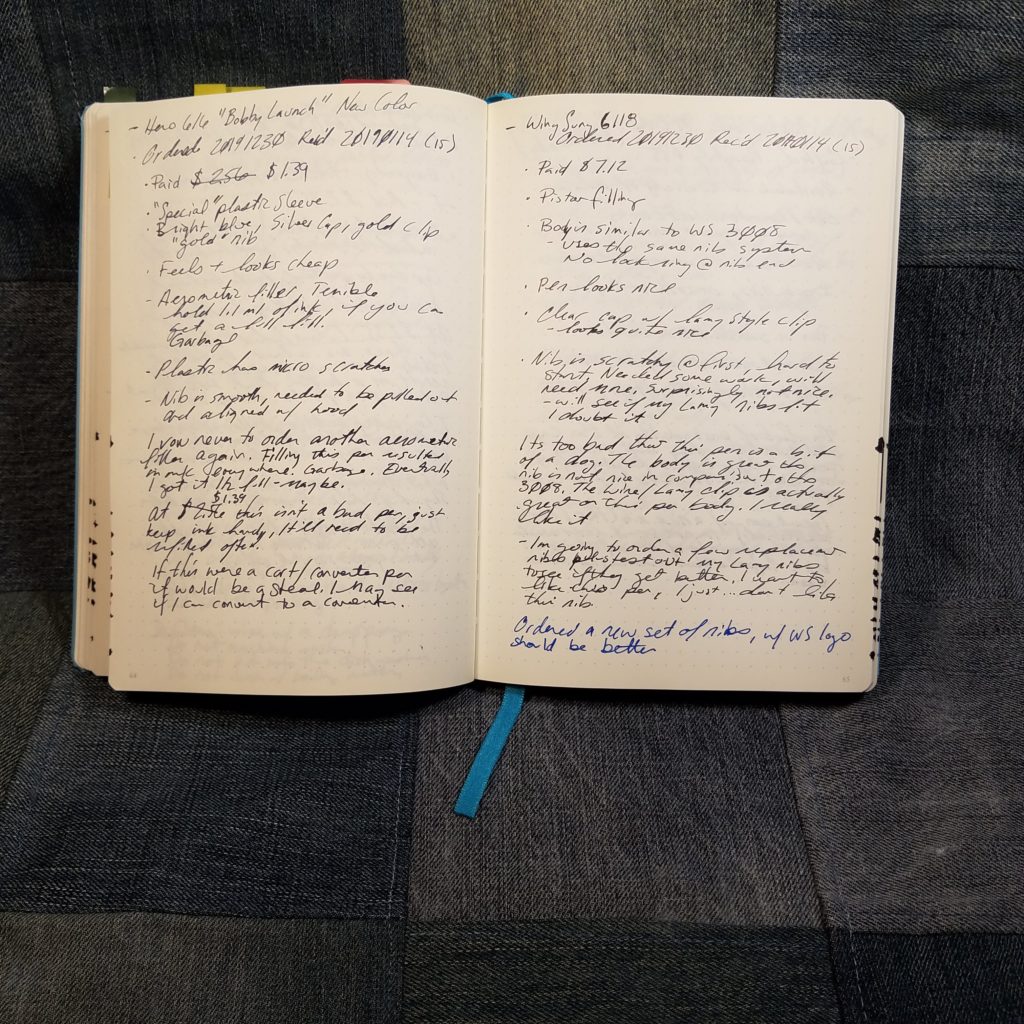 - Hero 616 "Bobby Launch" New Color
· Ordered 20191230 Rec'd 20190114 (15)
· Paid $2.56 $1.39
· "Special" plastic Sleeve
· Bright blue, Silver Cap, gold clip
"gold" nib
· Feels + looks cheap
- Aerometric filler, Terrible
hold 1.1 ml of ink, if you can
get a full fill.
Garbage
- Plastic has micro scratches
- Nib is smooth, needed to be pulled out
and aligned w/ hood
I vow never to order another aerometric
filler again. Filling this pen resulted
in ink everywhere. Garbage. Eventually
I got it to fill - maybe.
$1.39
at this isn't a bad pen, just
keep ink handy, it'll need to be
refilled often.
If this were a cart/converter pen
it would be a steal. I may see
if I can convert to a converter.
64
- Wing Sung 6118
Ordered 20191230 Rec'd (15)
· Paid $7.12
· Piston filling
· Body is similar to WS 3008
- uses the same nib system
No lock ring @ nib end
· Pen looks nice
· Clear cap w/ Lamy style clip
- looks quite nice
· Nib is scratchy @ first, hard to
start, Needed some work, will
need more. Surprisingly not nice.
- will see if my Lamy nibs fit
I doubt it
Its too bad that this pen is a bit
of a dog. The body is great the
nib is not nice in comparison to the
3008. The Wire/Lamy clip is actually
great on this pen body. I really
like it
- I'm going to order a few replacement
nibs test out my Lamy nibs
to see if they get better. I want to
like this pen, I just... don't like
this nib
Ordered a new set of nibs, w/ WS logo
should be better
65